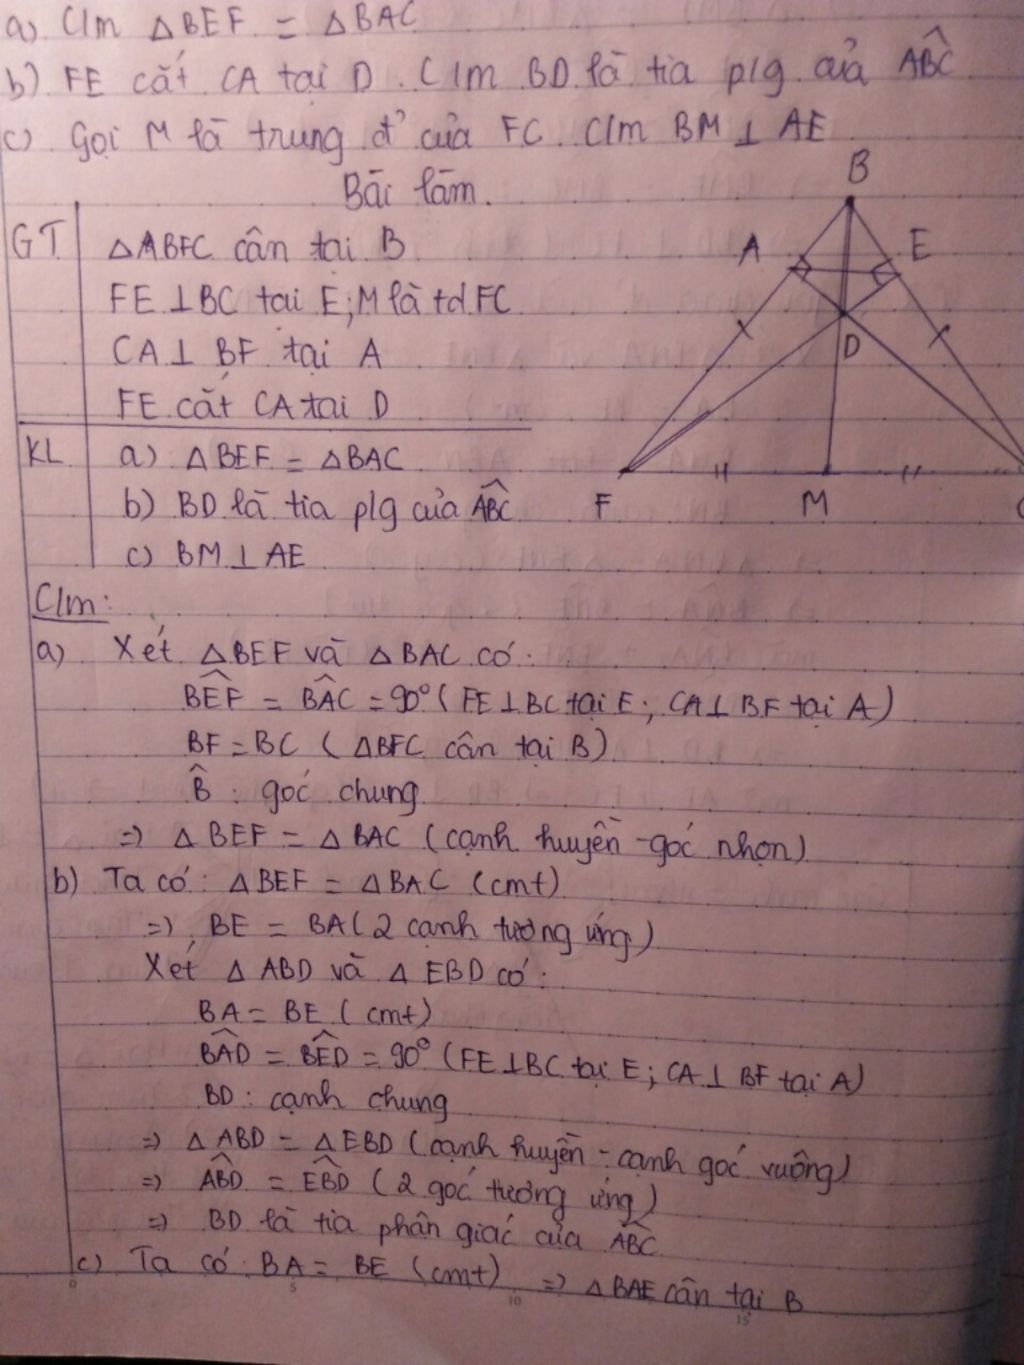 a) C/m △BEF = △BAC
b) FE cắt CA tại D. C/m BD là tia p/g của ABC
c) Gọi M là trung đ' của FC. C/m BM ⊥ AE
Bài làm.
GT
△ABFC cân tại B
FE ⊥ BC tại E; M là td FC
CA ⊥ BF tại A
FE cắt CA tại D
KL
a) △BEF = △BAC
b) BD là tia p/g của ABC
c) BM ⊥ AE
B
A
E
D
F
M
C/m:
a) Xét △BEF và △BAC có:
BEF = BAC = 90° (FE ⊥ BC tại E; CA ⊥ BF tại A)
BF = BC (△BFC cân tại B)
B̂ : góc chung
=> △BEF = △BAC (cạnh huyền - góc nhọn)
b) Ta có: △BEF = △BAC (cmt)
=> BE = BA (2 cạnh tương ứng)
Xét △ABD và △EBD có:
BA = BE (cmt)
BAD = BED = 90° (FE ⊥ BC tại E; CA ⊥ BF tại A)
BD : cạnh chung
=> △ABD = △EBD (cạnh huyền - cạnh góc vuông)
=> ABD = EBD (2 góc tương ứng)
=> BD là tia phân giác của ABC
c) Ta có: BA = BE (cmt) => △BAE cân tại B
0 5 10 15